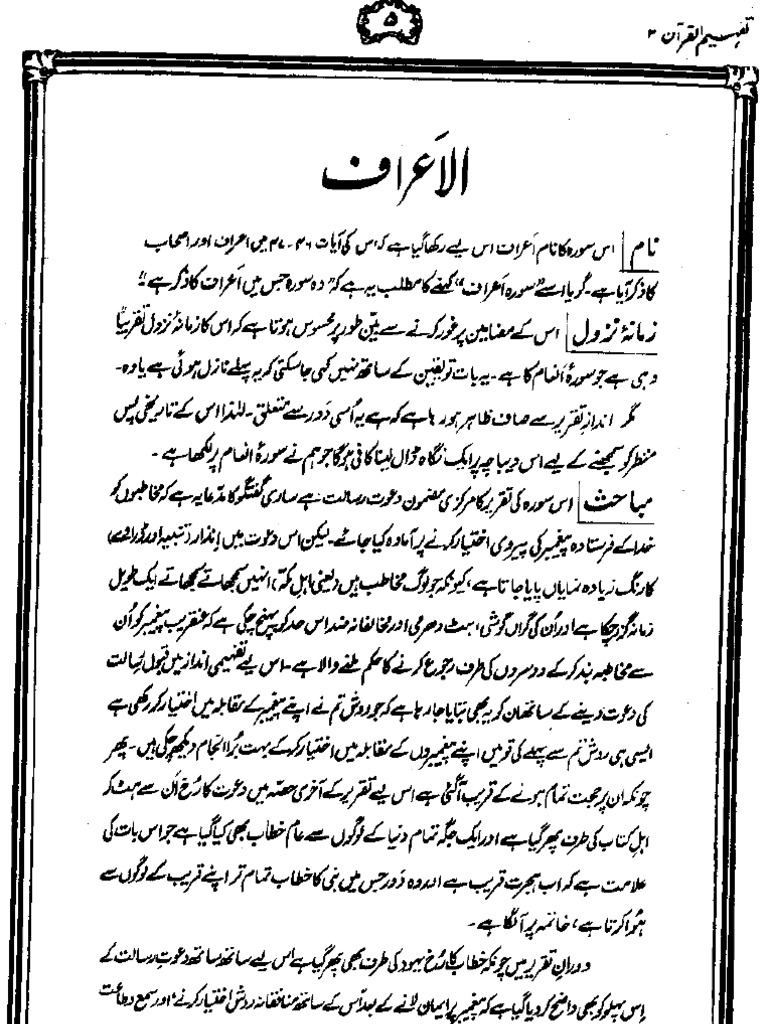 ۵
تفہیم القرآن ۲
الاَعراف
نام اس سورہ کا نام اَعراف اس لیے رکھا گیا ہے کہ اس کی آیات ۴۶-۴۷ میں اعراف اور اصحاب
کا ذکر آیا ہے۔ گویا اسے ”سورہ اَعراف“ کہنے کا مطلب یہ ہے کہ ”وہ سورہ جس میں اَعراف کا ذکر ہے“۔
زمانۂ نزول اس کے مضامین پر غور کرنے سے بیّن طور پر محسوس ہوتا ہے کہ اس کا زمانۂ نزول تقریباً
وہی ہے جو سورۂ اَنعام کا ہے۔ یہ بات تو یقین کے ساتھ نہیں کہی جا سکتی کہ یہ پہلے نازل ہوئی ہے یا وہ۔
مگر اندازِ تقریر سے صاف ظاہر ہو رہا ہے کہ ہے یہ اُسی دَور سے متعلق۔ لہٰذا اس کے تاریخی پس
منظر کو سمجھنے کے لیے اس دیباچہ پر ایک نگاہ ڈال لینا کافی ہوگا جو ہم نے سورۂ انعام پر لکھا ہے۔
مباحث اس سورہ کی تقریر کا مرکزی مضمون دعوتِ رسالت ہے ساری گفتگو کا مدّعا یہ ہے کہ مخاطبوں کو
خدا کے فرستادہ پیغمبر کی پیروی اختیار کرنے پر آمادہ کیا جائے۔ لیکن اس دعوت میں اِنذار (تنبیہ اور ڈراوے)
کا رنگ زیادہ نمایاں پایا جاتا ہے، کیونکہ جو لوگ مخاطب ہیں (یعنی اہلِ مکّہ) انہیں سمجھاتے سمجھاتے ایک طویل
زمانہ گزر چکا ہے اور اُن کی گراں گوشی، ہٹ دھرمی اور مخالفانہ ضد اس حد کو پہنچ چکی ہے کہ عنقریب پیغمبر کو اُن
سے مخاطبہ بند کر کے دوسروں کی طرف رجوع کرنے کا حکم ملنے والا ہے۔ اس لیے تفہیمی انداز میں قبولِ رسالت
کی دعوت دینے کے ساتھ ان کو یہ بھی بتایا جا رہا ہے کہ جو روش تم نے اپنے پیغمبر کے مقابلہ میں اختیار کر رکھی ہے
ایسی ہی روش تم سے پہلے کی قومیں اپنے پیغمبروں کے مقابلہ میں اختیار کر کے بہت بُرا انجام دیکھ چکی ہیں۔ پھر
چونکہ ان پر حجت تمام ہونے کے قریب آگئی ہے اس لیے تقریر کے آخری حصّہ میں دعوت کا رُخ اُن سے ہٹ کر
اہلِ کتاب کی طرف پھر گیا ہے اور ایک جگہ تمام دنیا کے لوگوں سے عام خطاب بھی کیا گیا ہے جو اس بات کی
علامت ہے کہ اب ہجرت قریب ہے اور وہ دَور جس میں نبی کا خطاب تمام تر اپنے قریب کے لوگوں سے
ہُوا کرتا ہے، خاتمہ پر آ لگا ہے۔
دورانِ تقریر میں چونکہ خطاب کا رُخ یہود کی طرف بھی پھر گیا ہے اس لیے ساتھ ساتھ دعوتِ رسالت کے
اِس پہلو کو بھی واضح کر دیا گیا ہے کہ پیغمبر پر ایمان لانے کے بعد اُس کے ساتھ منافقانہ روش اختیار کرنے، اور سمع و طاعت